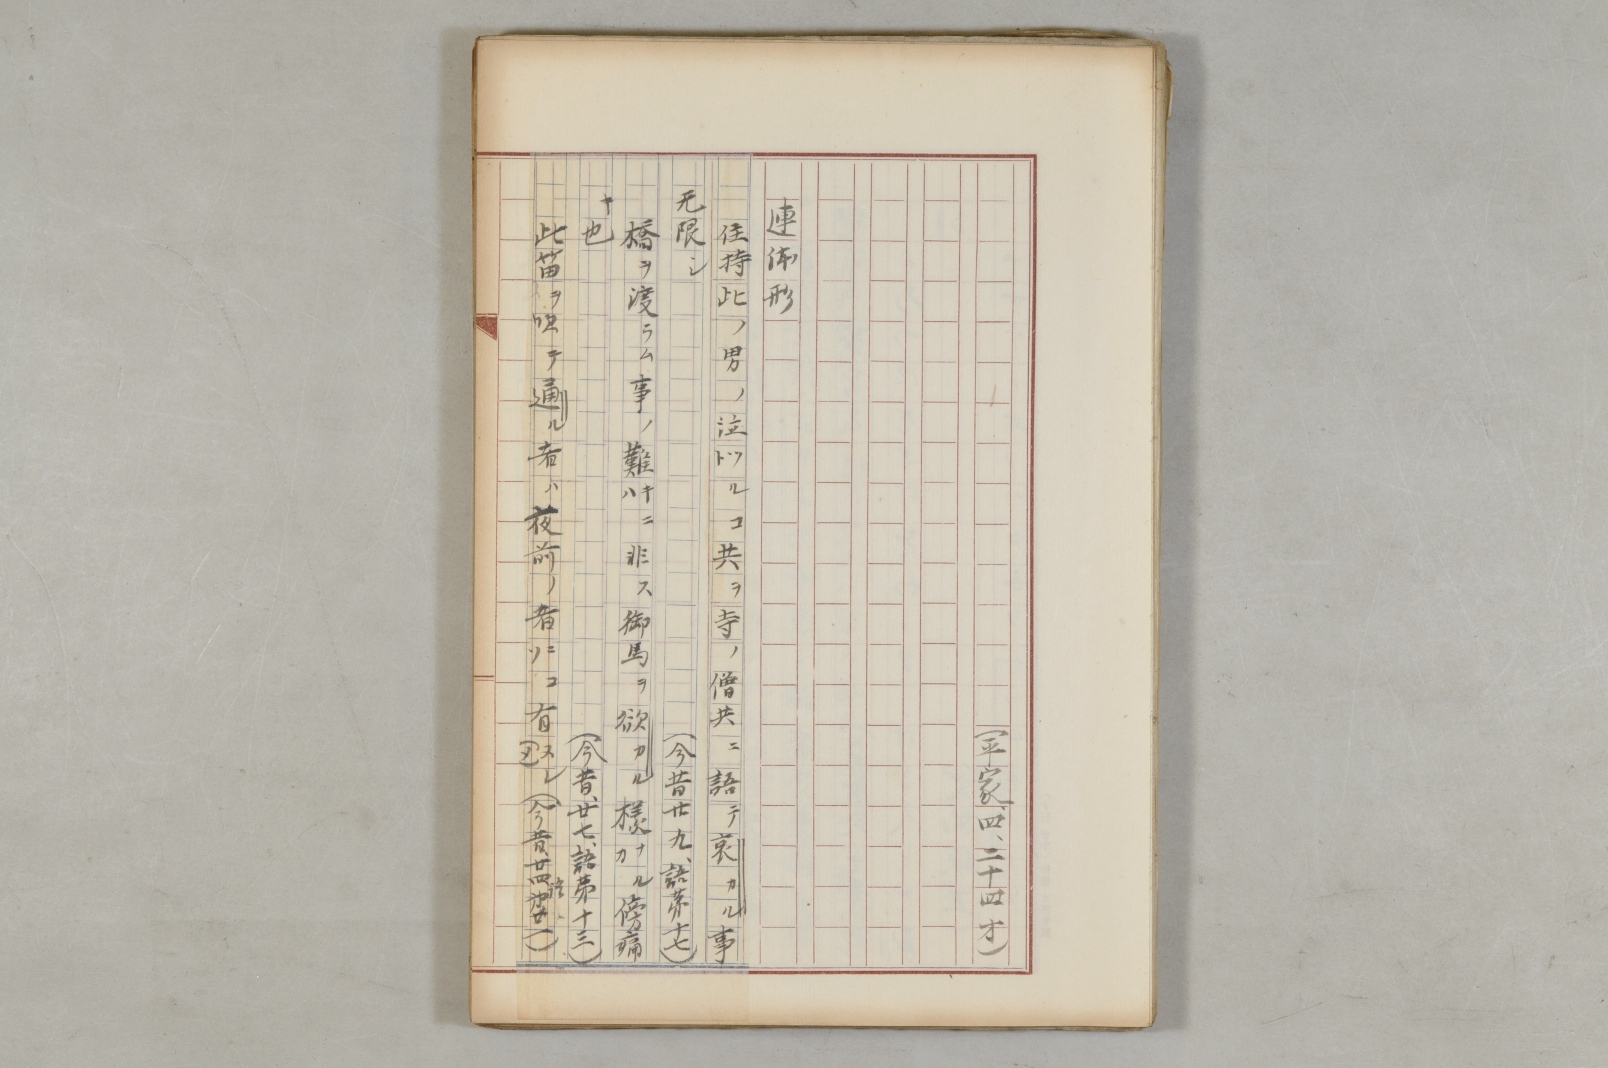 (平家、四、二十四オ)
連体形
住持此ノ男ノ泣ドツルコ共ヲ寺ノ僧共ニ語テ哀ガル事
无限シ
(今昔廿九、語第十七)
橋ヲ渡ラム事ノ難キニハ非ス御馬ヲ欲ガル様ナルガ傍痛
キ也
(今昔、廿七、語第十三)
此笛ヲ吹テ通ル者ハ夜前ノ者ニソコ有ヌレ
(今昔、廿四